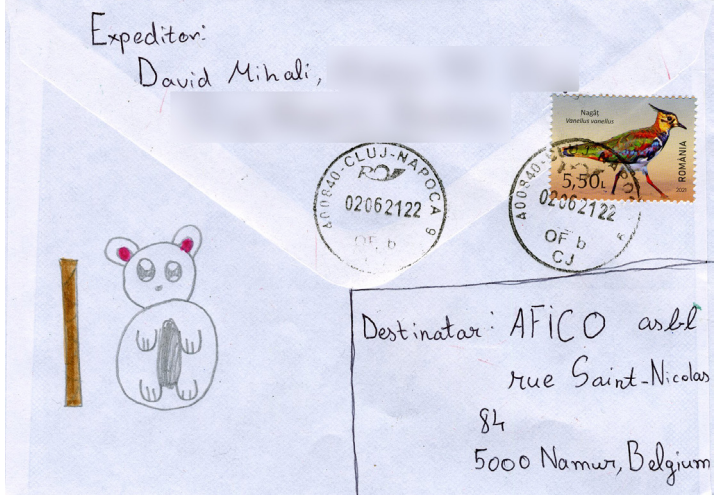 Expeditor:
David Mihali,
Nagâț
Vanellus vanellus
ROMÂNIA
5,50L
2021
400840-CLUJ-NAPOCA 9
02062122
OF. b
400840-
02062122
OF b
CJ
Destinatar: AFICO asbl
rue Saint-Nicolas
84
5000 Namur, Belgium